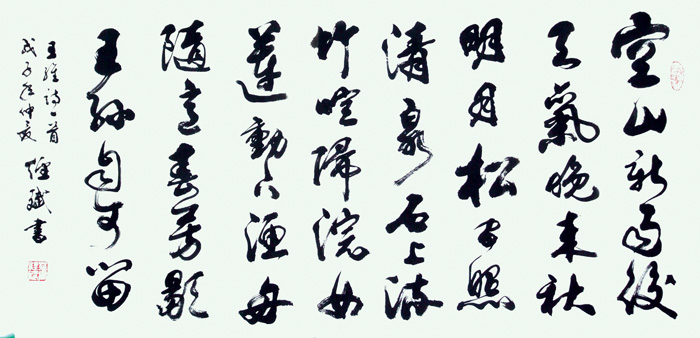 空山新雨後
天氣晚来秋
明月松间照
清泉石上流
竹喧歸浣女
蓮動下漁舟
隨意春芳歇
王孫自可留
王維詩一首
戊子年仲夏
書